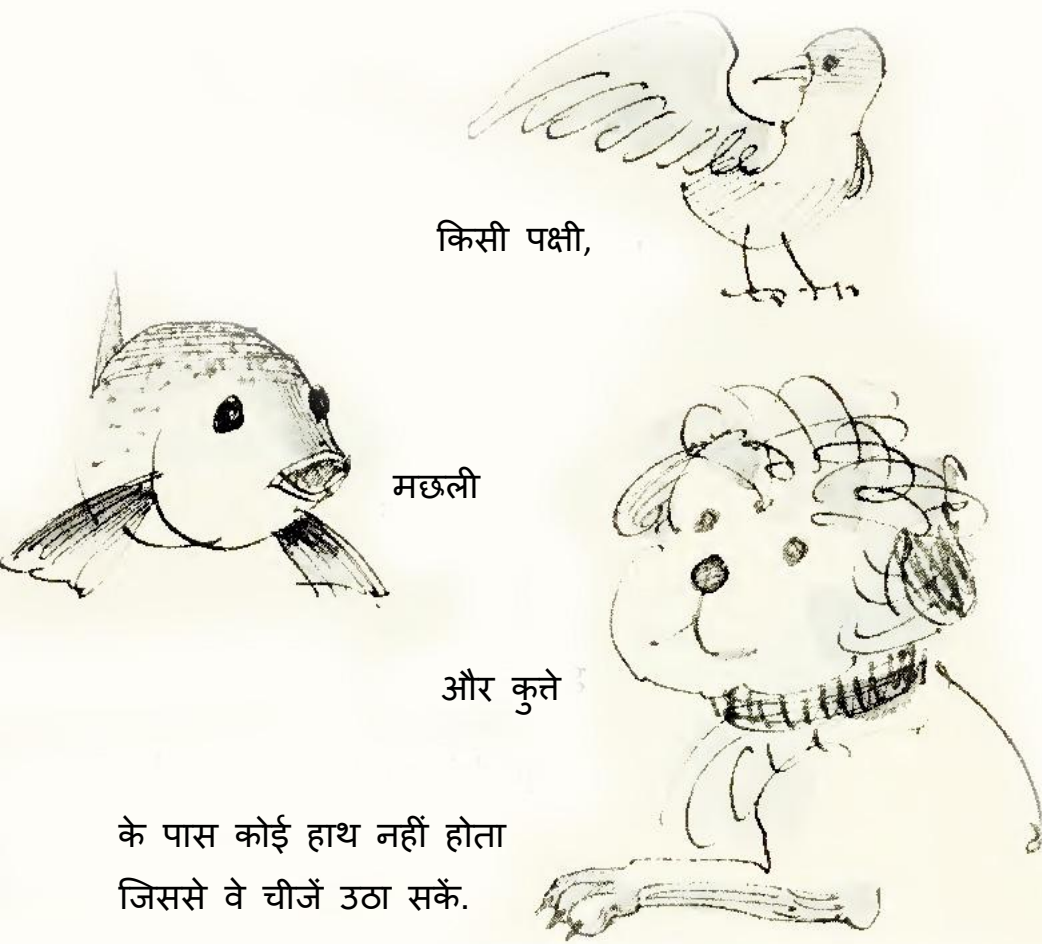 किसी पक्षी,
मछली
और कुत्ते
के पास कोई हाथ नहीं होता
जिससे वे चीजें उठा सकें.